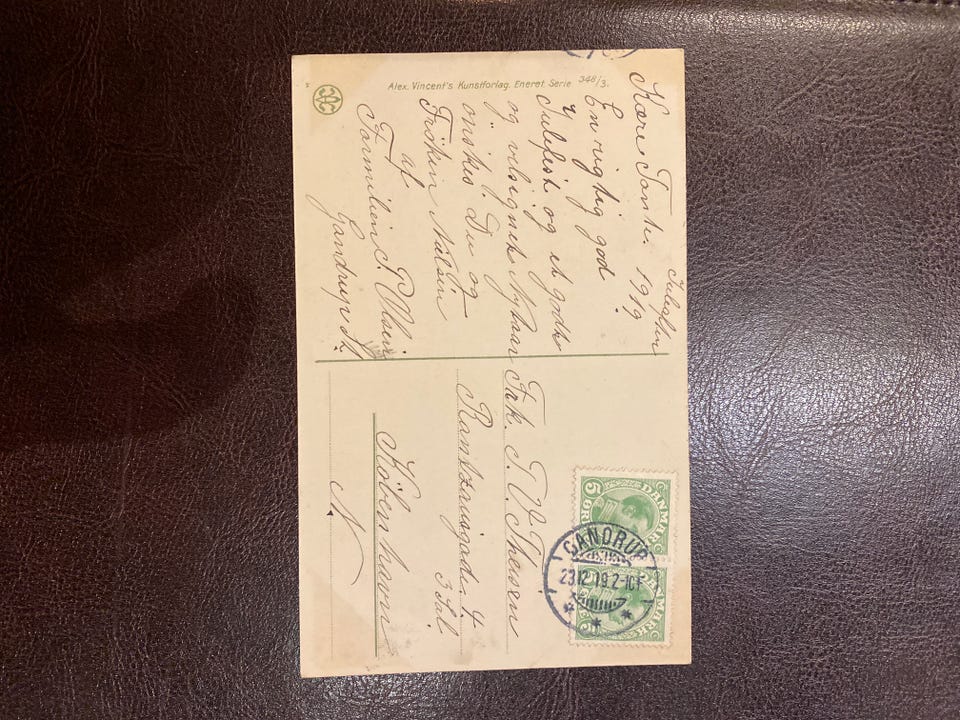 Alex. Vincent's Kunstforlag. Eneret. Serie 348/3.
Juleaften
Kære Tante. 1919
En rigtig god
Julefest og et godt
og velsignet Nytaar
ønskes. Du og
Frøken Nilsen
af
Familien
Gandrup St.
Frk. T. V. Theisen
Rantzausgade
4
3 Sal
København
N.
DANMARK
5 ØRE
DANMARK
GANDRUP
23.12.19.2-10F